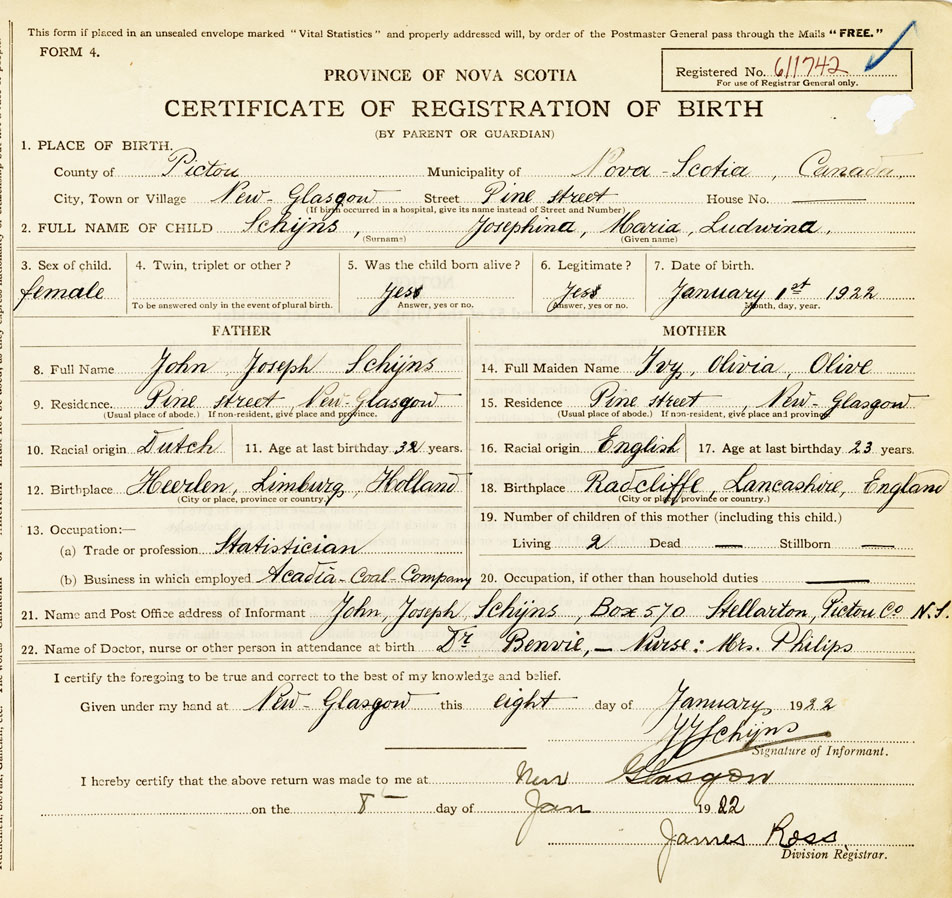 This form if placed in an unsealed envelope marked "Vital Statistics" and properly addressed will, by order of the Postmaster General pass through the Mails "FREE."
FORM 4.
Registered No. 611742
For use of Registrar General only.
PROVINCE OF NOVA SCOTIA
CERTIFICATE OF REGISTRATION OF BIRTH
(BY PARENT OR GUARDIAN)
1. PLACE OF BIRTH.
County of Pictou Municipality of Nova-Scotia, Canada
City, Town or Village New-Glasgow Street Pine street House No. ———
(If birth occurred in a hospital, give its name instead of Street and Number)
2. FULL NAME OF CHILD Schijns, Josephina, Maria, Ludwina.
(Surname) (Given name)
3. Sex of child. 4. Twin, triplet or other? 5. Was the child born alive? 6. Legitimate? 7. Date of birth.
female yes yes January 1st 1922
To be answered only in the event of plural birth. Answer, yes or no. Answer, yes or no. Month, day, year.
FATHER MOTHER
8. Full Name John Joseph Schijns 14. Full Maiden Name Ivy, Olivia, Olive
9. Residence. Pine street New-Glasgow 15. Residence Pine street, New-Glasgow
(Usual place of abode.) If non-resident, give place and province. (Usual place of abode.) If non-resident, give place and province
10. Racial origin Dutch 11. Age at last birthday 32 years. 16. Racial origin English 17. Age at last birthday 23 years.
12. Birthplace Heerlen, Limburg, Holland 18. Birthplace Radcliffe, Lancashire, England
(City or place, province or country.) (City or place, province or country.)
13. Occupation:— 19. Number of children of this mother (including this child.)
(a) Trade or profession Statistician Living 2 Dead — Stillborn —
(b) Business in which employed Acadia-Coal-Company 20. Occupation, if other than household duties ———
21. Name and Post Office address of Informant John, Joseph, Schijns, Box 570 Stellarton, Pictou Co N.S.
22. Name of Doctor, nurse or other person in attendance at birth Dr Benvie, — Nurse: Mrs. Philips
I certify the foregoing to be true and correct to the best of my knowledge and belief.
Given under my hand at New-Glasgow this eight day of January 1922
JJSchijns
Signature of Informant.
I hereby certify that the above return was made to me at New Glasgow
on the 8 day of Jan 1922
James Ross
Division Registrar.